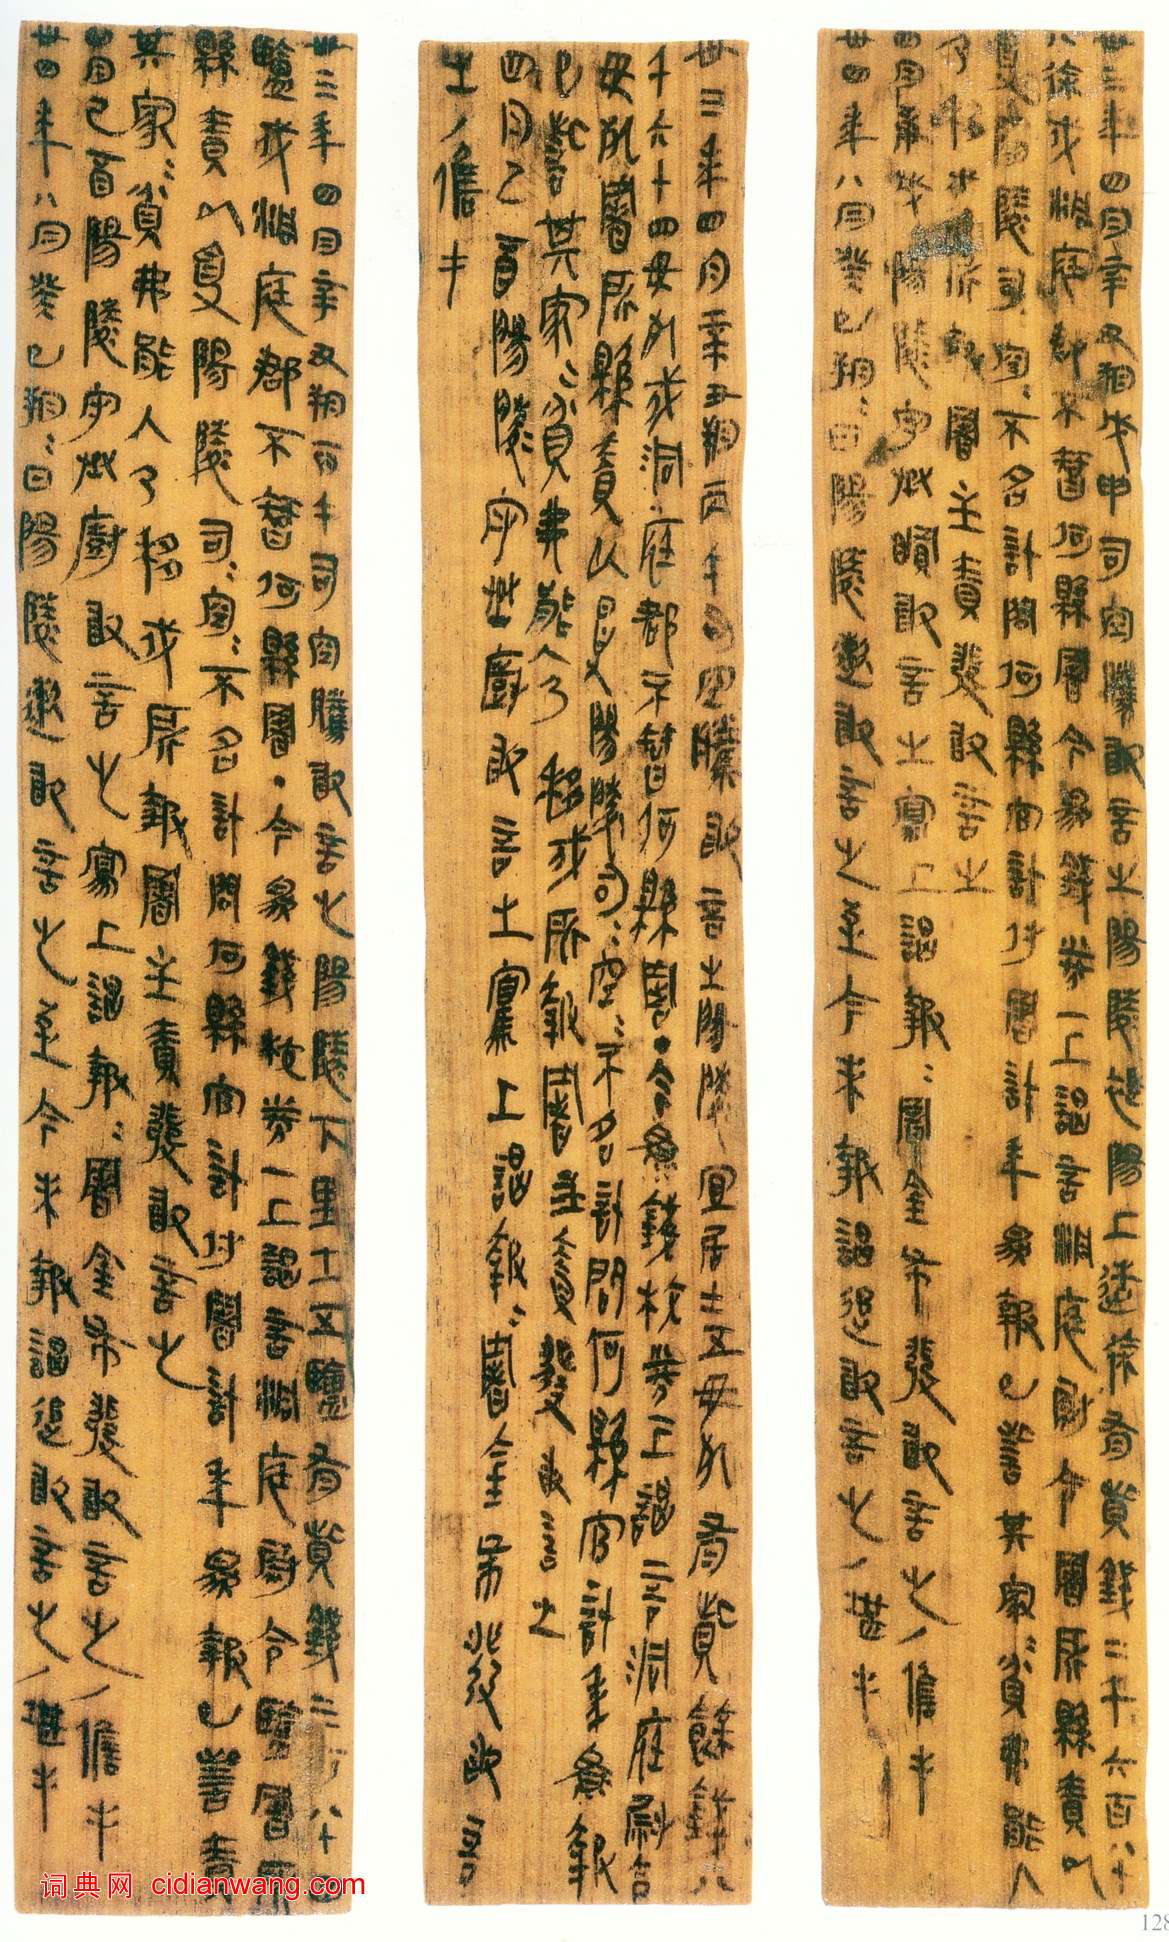 卅三年四月辛丑朔戊申司空騰敢言之陽陵褆陽上造徐有貲錢二千六百八十
八徐戍洞庭郡不智何縣署今為錢券一上謁言洞庭尉令署所縣責以
受陽陵司=空=不名計問何縣官計付署計年為報已訾其家=貧弗能入
乃移戍所報署主責發敢言之
四月庚戌陽陵守丞敢言之寫上謁報=署金布發敢言之/儋手
卅四年八月癸巳朔=日陽陵遬敢言之至今未報謁追敢言之/堪手
卅三年四月辛丑朔丙午司空騰敢言之陽陵宜居士五毋死有貲餘錢八
千六十四毋死戍洞庭郡不智何縣署●今為錢校券一上謁言洞庭尉令
毋死署所縣責以受陽陵司=空=不名計問何縣官計年為報
已訾其家=貧弗能入乃移戍所報署主責發敢言之
四月己酉陽陵守丞廚敢言之寫上謁報=署金布發敢言
之/儋手
卅三年四月辛丑朔丙午司空騰敢言之陽陵下里士五鹽有貲錢三百八十四
鹽戍洞庭郡不智何縣署●今為錢校券一上謁言洞庭尉令鹽署所
縣責以受陽陵司=空=不名計問何縣官計付署計年為報已訾責
其家=貧弗能入乃移戍所報署主責發敢言之
四月己酉陽陵守丞廚敢言之寫上謁報=署金布發敢言之/儋手
卅四年八月癸巳朔=日陽陵遬敢言之至今未報謁追敢言之/堪手
词典网 cidianwang.com
128